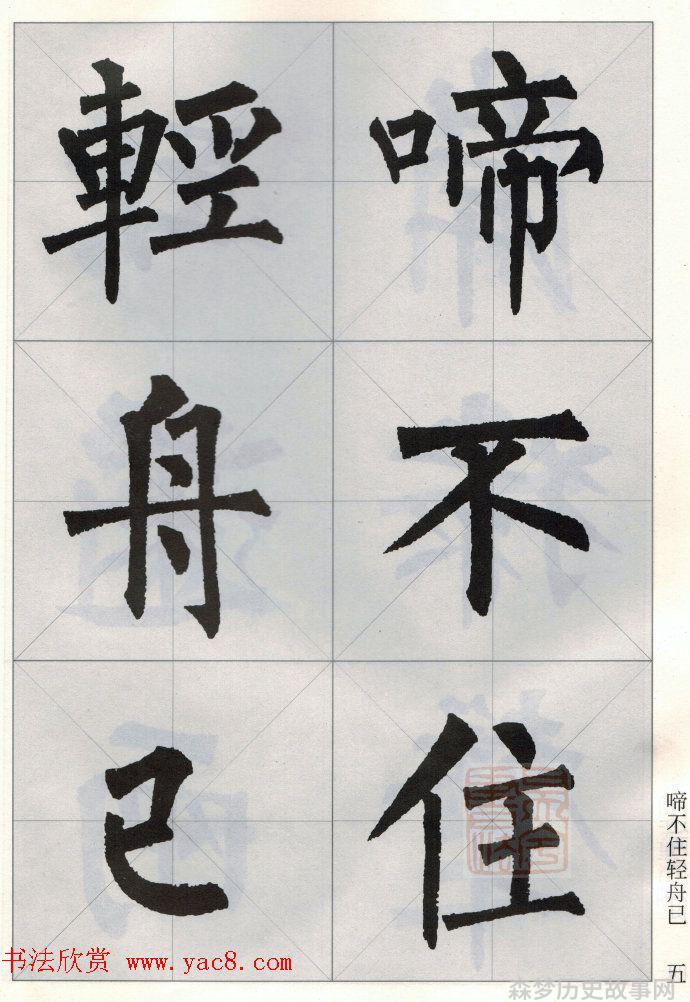 啼不住
輕舟已
啼不住轻舟已 五
书法欣赏 www.yac8.com
森梦历史故事网